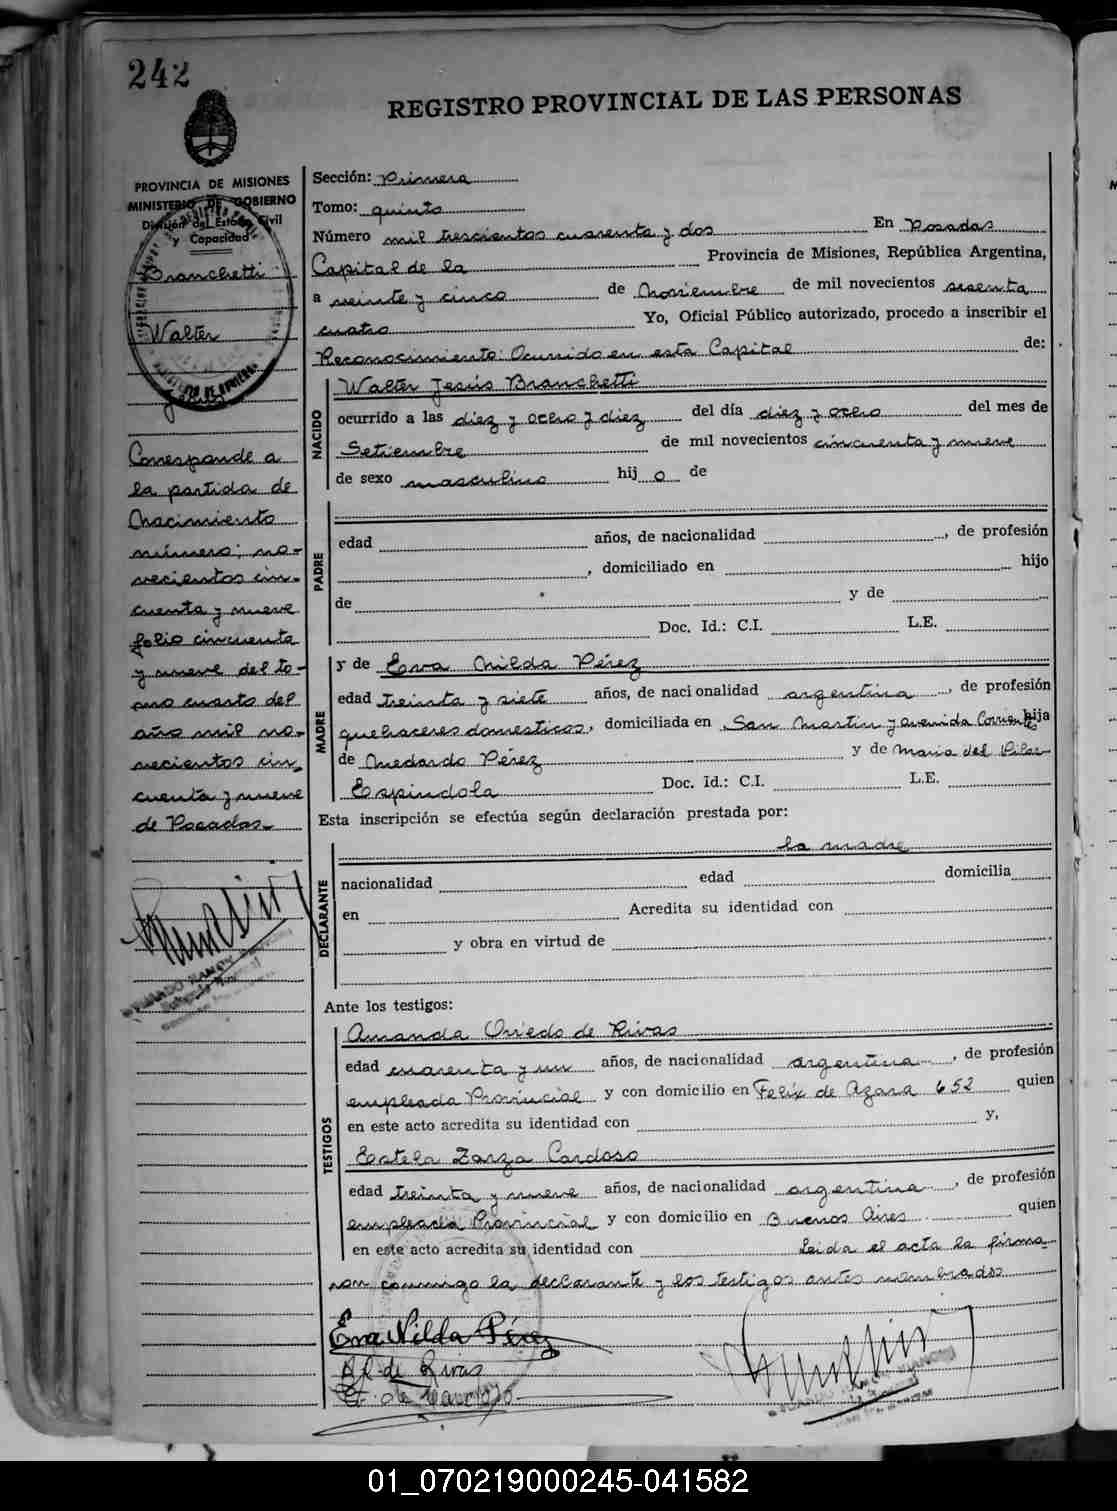 242
REGISTRO PROVINCIAL DE LAS PERSONAS
PROVINCIA DE MISIONES
MINISTERIO DE GOBIERNO
División del Estado Civil
y Capacidad
Branchetti
Walter
Jesús
Corresponde a
la partida de
Nacimiento
número; no-
vecientos cin-
cuenta y nueve
folio cincuenta
y nueve del to-
mo cuarto del
año mil no-
vecientos cin-
cuenta y nueve
de Posadas-
Sección: Primera
Tomo: quinto
Número mil trescientos cuarenta y dos En Posadas
Capital de la Provincia de Misiones, República Argentina,
a veinte y cinco de Noviembre de mil novecientos sesenta
cuatro Yo, Oficial Público autorizado, procedo a inscribir el
Reconocimiento: Ocurrido en esta Capital de:
NACIDO
Walter Jesús Branchetti
ocurrido a las diez y ocho y diez del día diez y ocho del mes de
Setiembre de mil novecientos cincuenta y nueve
de sexo masculino hij o de
PADRE
edad años, de nacionalidad , de profesión
, domiciliado en hijo
de y de
Doc. Id.: C.I. L.E.
MADRE
y de Eva Nilda Pérez
edad treinta y siete años, de nacionalidad argentina , de profesión
quehaceres domesticos, domiciliada en San Martin y avenida Corrientes hija
de Medardo Pérez y de Maria del Pilar
Espindola Doc. Id.: C.I. L.E.
Esta inscripción se efectúa según declaración prestada por:
la madre
DECLARANTE
nacionalidad edad domicilia
en Acredita su identidad con
y obra en virtud de
Ante los testigos:
TESTIGOS
Amanda Oviedo de Rivas
edad cuarenta y un años, de nacionalidad argentina , de profesión
empleada Provincial y con domicilio en Felix de Azara 652 quien
en este acto acredita su identidad con y,
Estela Zarza Cardoso
edad treinta y nueve años, de nacionalidad argentina , de profesión
empleada Provincial y con domicilio en Buenos Aires quien
en este acto acredita su identidad con Leida el acta la firma
ron conmigo la declarante y los testigos antes nombrados
Eva Nilda Pérez
A.O. de Rivas
01_070219000245-041582